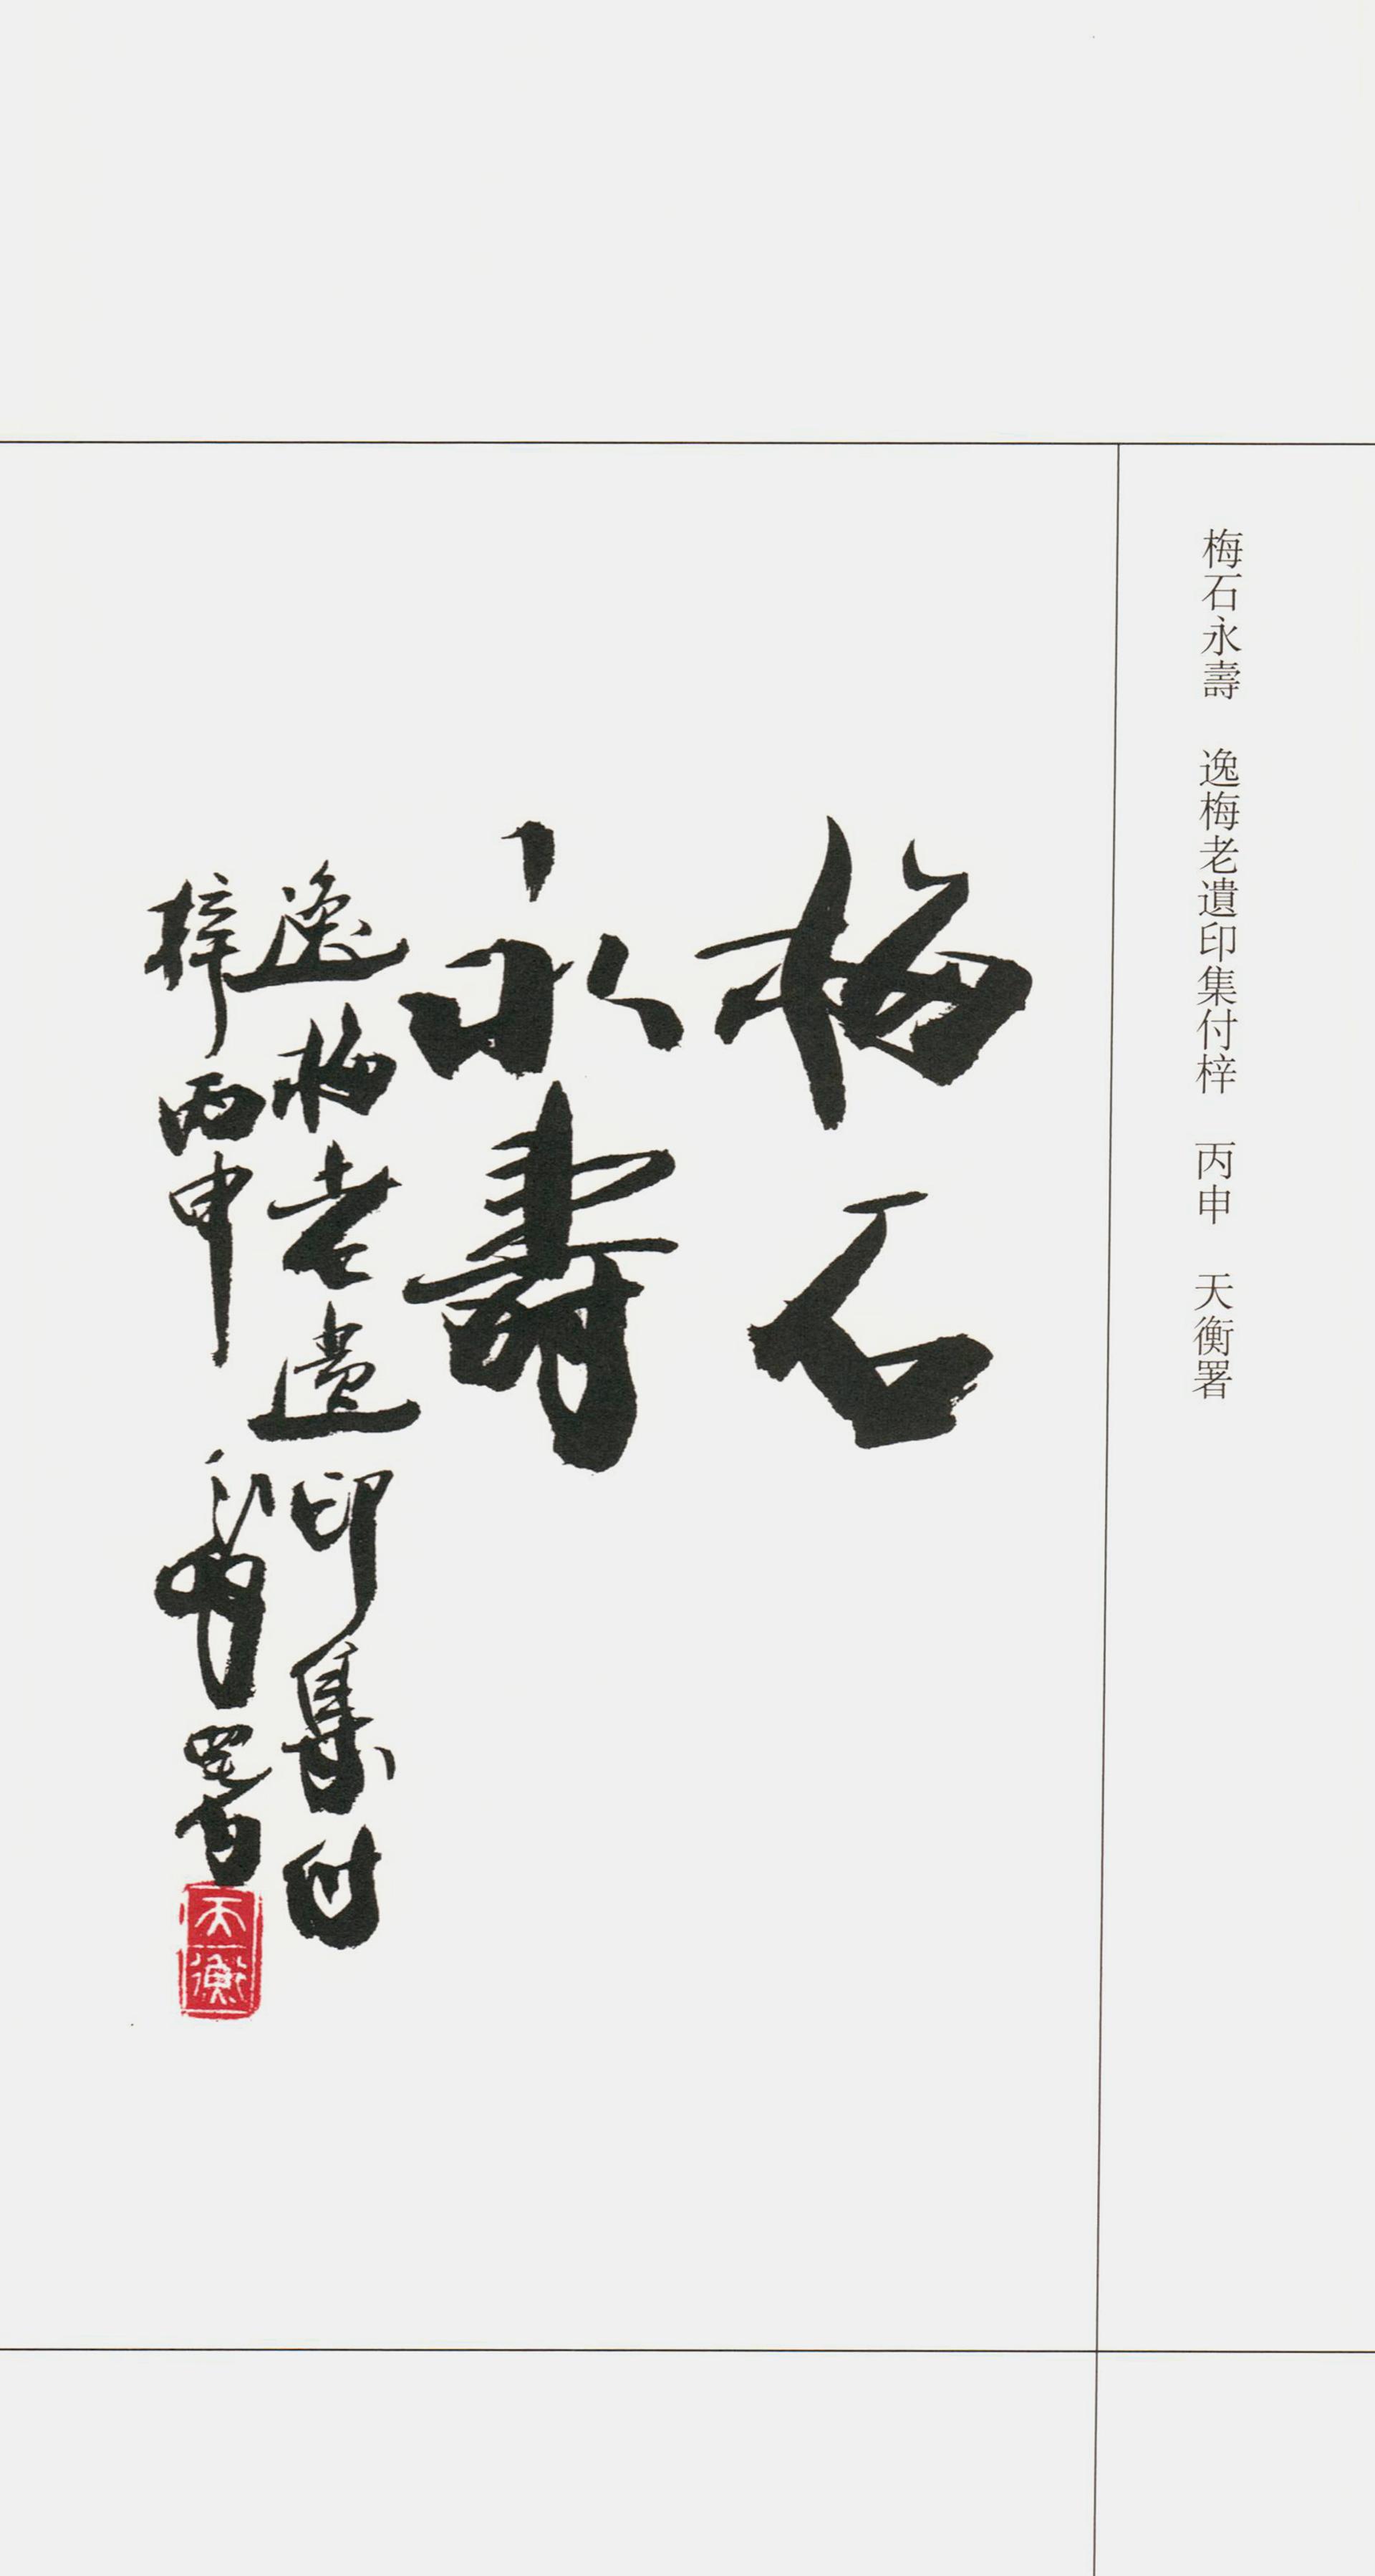 梅石永壽　逸梅老遺印集付梓　丙申　天衡署
梅石
永壽
逸梅老遺印集付
梓丙申天衡署
天衡